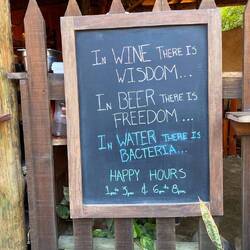 IN WINE THERE IS
WISDOM...
IN BEER THERE IS
FREEDOM...
IN WATER THERE IS
BACTERIA...
HAPPY HOURS
1pm 3pm & 6pm 8pm